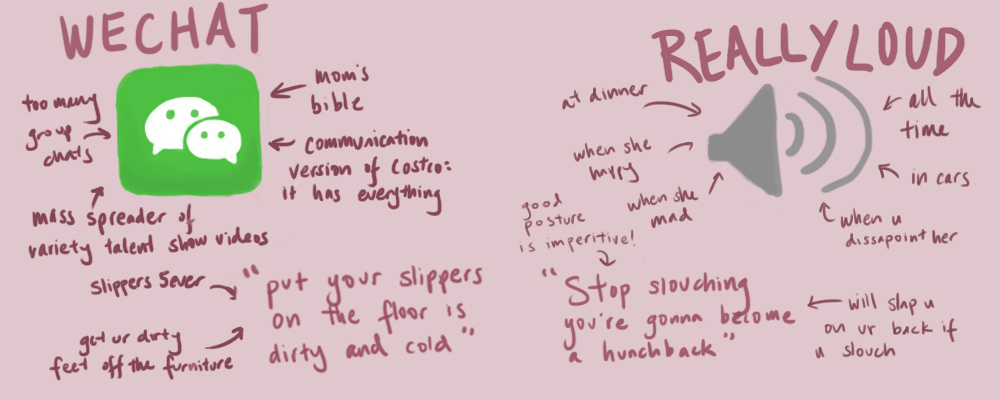 WECHAT
too many
group
chats
mom's
bible
communication
version of Costco:
it has everything
mass spreader of
variety talent show videos
slippers 5ever
get ur dirty
feet off the furniture
"put your slippers
on the floor is
dirty and cold"
REALLY LOUD
at dinner
when she
happy
when she
mad
all the
time
in cars
when u
dissapoint her
good
posture
is imperitive!
"Stop slouching
you're gonna become
a hunchback"
will slap u
on ur back if
u slouch